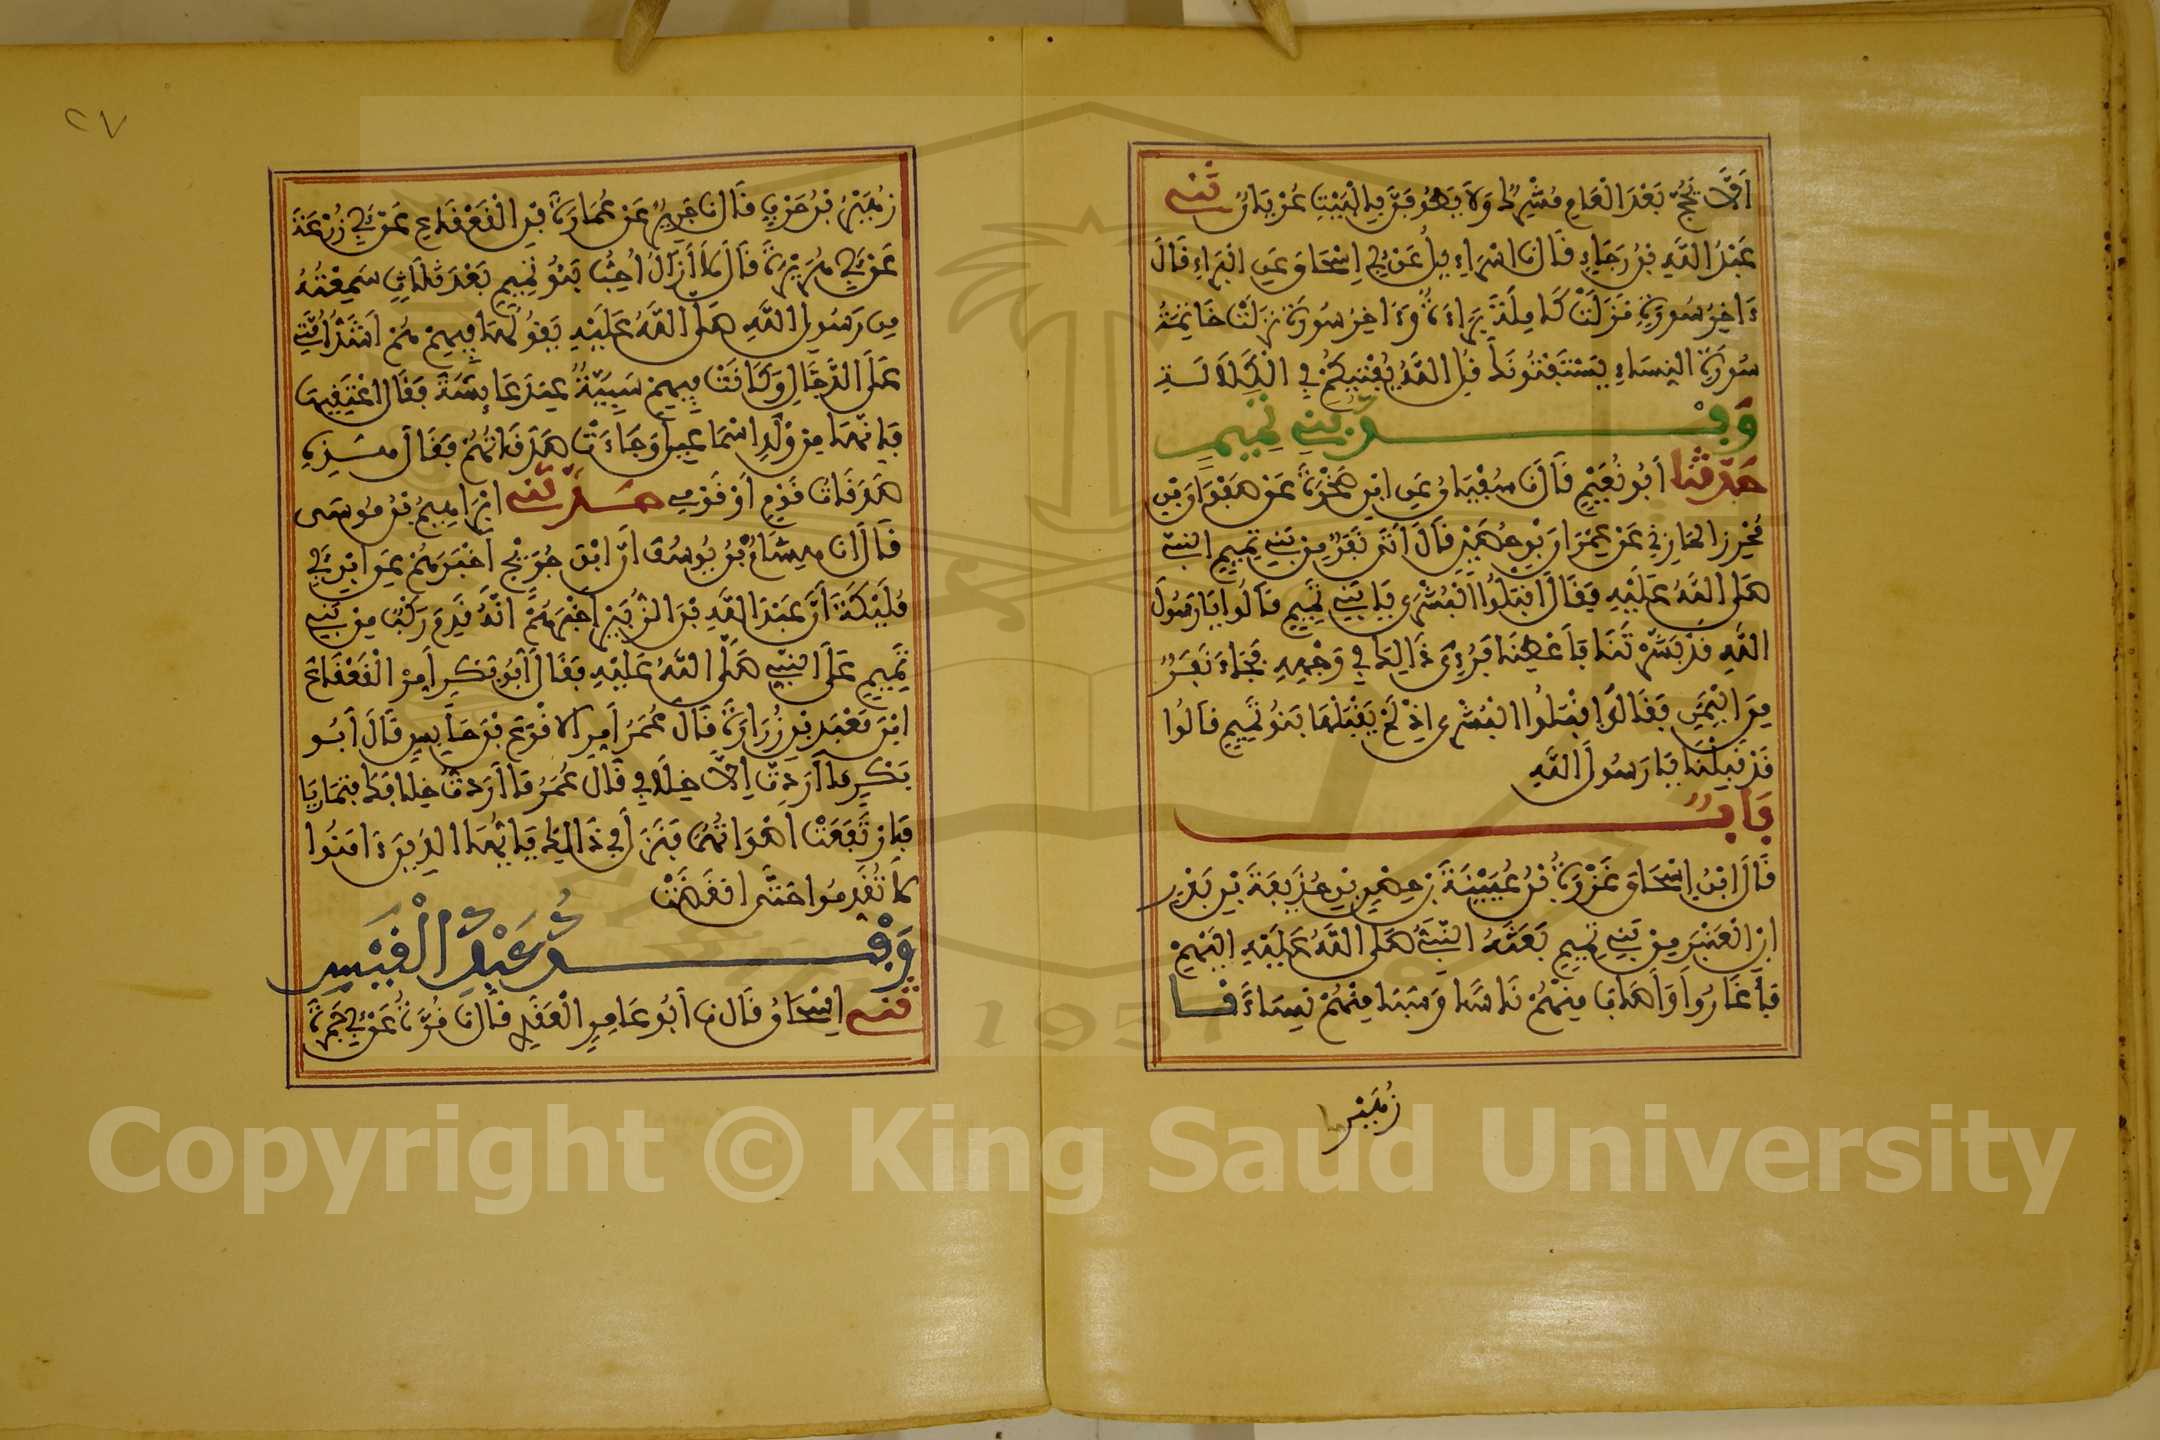 اَلَّا يَحُجَّ بَعْدَ الْعَامِ مُشْرِكٌ وَلَا يَطُوفَنَّ بِالْبَيْتِ عُرْيَانٌ ثنى
عَبْدُ اللَّهِ بْنُ رَجَاءٍ قَالَ نا اسْرَاءِيلُ عَنْ أَبِي إِسْحَاقَ عَنِ الْبَرَاءِ قَالَ
ءَاخِرُ سُورَةٍ نَزَلَتْ كَامِلَةً بَرَاءَةٌ وَءَاخِرُ سُورَةٍ نَزَلَتْ خَاتِمَةُ
سُورَةِ النِّسَاءِ يَسْتَفْتُونَكَ قُلِ اللَّهُ يُفْتِيكُمْ فِي الْكَلَالَةِ
وَفْدُ بَنِي تَمِيمٍ
حَدَّثَنَا أَبُو نُعَيْمٍ قَالَ نَا سُفْيَانُ عَنِ ابْنِ صَخْرَةَ عَنْ صَفْوَانَ بْنِ
مُحْرِزٍ الْمَازِنِي عَنْ عِمْرَانَ بْنِ حُصَيْنٍ قَالَ أَتَى نَفَرٌ مِنْ بَنِي تَمِيمٍ النبيَّ
صَلَّى اللَّهُ عَلَيْهِ فَقَالَ اقْبَلُوا الْبُشْرَى يَا بَنِي تَمِيمٍ قَالُوا يَا رَسُولَ
اللَّهِ قَدْ بَشَّرْتَنَا فَأَعْطِنَا فَرُءِيَ ذَالِكَ فِي وَجْهِهِ فَجَاءَ نَفَرٌ
مِنَ الْيَمَنِ فَقَالَ اقْبَلُوا الْبُشْرَى إِذْ لَمْ يَقْبَلْهَا بَنُو تَمِيمٍ قَالُوا
قَدْ قَبِلْنَا يَا رَسُولَ اللَّهِ
بَابٌ
قَالَ ابْنُ إِسْحَاقَ غَزْوَةُ بْنُ عُيَيْنَةَ بْنِ حِصْنِ بْنِ حُذَيْفَةَ بْنِ بَدْرٍ
ابْنِ الْعَنْبَرِ مِنْ بَنِي تَمِيمٍ بَعَثَهُ النَّبِيُّ صَلَّى اللَّهُ عَلَيْهِ إِلَيْهِمْ
فَأَغَارُوا وَأَصَابَ مِنْهُمْ نَاسًا وَسَبَا مِنْهُمْ نِسَاءً نا
زُهَيْرُ
٢٧
زُهَيْرُ بْنُ حَرْبٍ قَالَ نَا جَرِيرٌ عَنْ عُمَارَةَ بْنِ الْقَعْقَاعِ عَنْ أَبِي زُرْعَةَ
عَنْ أَبِي هُرَيْرَةَ قَالَ لَا أَزَالُ أُحِبُّ بَنِي تَمِيمٍ بَعْدَ ثَلَاثٍ سَمِعْتُهُ
مِن رَسُولِ اللَّهِ صَلَّى اللَّهُ عَلَيْهِ يَقُولُهَا فِيهِمْ هُمْ أَشَدُّ أُمَّتِي
عَلَى الدَّجَّالِ وَكَانَتْ فِيهِمْ سَبِيَّةٌ عِنْدَ عَائِشَةَ فَقَالَ اعْتِقِيهَا
فَإِنَّهَا مِنْ وَلَدِ اسْمَاعِيلَ وَجَاءَتْ صَدَقَاتُهُمْ فَقَالَ هَذِهِ
صَدَقَاتُ قَوْمٍ أَوْ قَوْمِي حَدَّثَنِي ابْرَاهِيمُ بْنُ مُوسَى
قَالَ نا هِشَامُ بْنُ يُوسُفَ أَنَّ ابْنَ جُرَيْجٍ أَخْبَرَهُمْ عَنِ ابْنِ أَبِي
مُلَيْكَةَ أَنَّ عَبْدَ اللَّهِ بْنَ الزُّبَيْرِ أَخْبَرَهُمْ أَنَّهُ قَدِمَ رَكْبٌ مِنْ بَنِي
تَمِيمٍ عَلَى النَّبِيِّ صَلَّى اللَّهُ عَلَيْهِ فَقَالَ أَبُو بَكْرٍ أَمِّرِ الْقَعْقَاعَ
ابْنَ مَعْبَدِ بْنِ زُرَارَةَ قَالَ عُمَرُ أَمِّرِ الَاقْرَعَ بْنَ حَابِسٍ قَالَ أَبُو
بَكْرٍ مَا أَرَدتَّ إِلَّا خِلَافِي قَالَ عُمَرُ مَا أَرَدتُّ خِلَافَكَ فَتَمَارَيَا
حَتَّى ارْتَفَعَتْ اصْوَاتُهُمَا فَنَزَلَ فِي ذَالِكَ يَا أَيُّهَا الَّذِينَ ءَامَنُوا
لَا تُقَدِّمُوا حَتَّى انقَضَتْ
وَفْدُ عَبْدِ الْقَيْسِ
ثنى إِسْحَاقُ قَالَ نا أَبُو عَامِرٍ الْعَقَدِي قَالَ نَا قُرَّةُ عَنْ أَبِي جَمْرَةَ
Copyright © King Saud University
1957